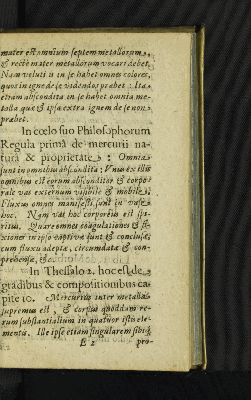 mater est omnium septem metallorum,
& recte mater metallorum vocari debet.
Nam veluti in se habet omnes colores,
quos in igne de se videndos præbet: Ita
etiam abscondita in se habet omnia me-
talla quæ & ipsa extra ignem de se non
præbet.
In cœlo suo Philosophorum
Regula prima de mercurii na-
tura & proprietate: Omnia
sunt in omnibus abscondita: Vnus ex illis
omnibus est eorum absconditor & corpo-
rale vas externum visibile & mobile:
Fluxus omnes manifesti sunt in vase
hoc. Nam vas hoc corporeus est spi-
ritus. Quare omnes coagulationes &
xiones in ipso captivæ sunt & conclusæ,
cum fluxu adeptæ, circumdatæ & con-
prehensæ, &c.
In Thessalo 2. hoc est, de
gradibus & compositionibus ca-
pite 10. Mercurius inter metalla
supremus est, & corpus quoddam re-
rum substantialium in quatuor istis ele-
mentis. Ille ipse etiam singularem sibi
E 2 pro-